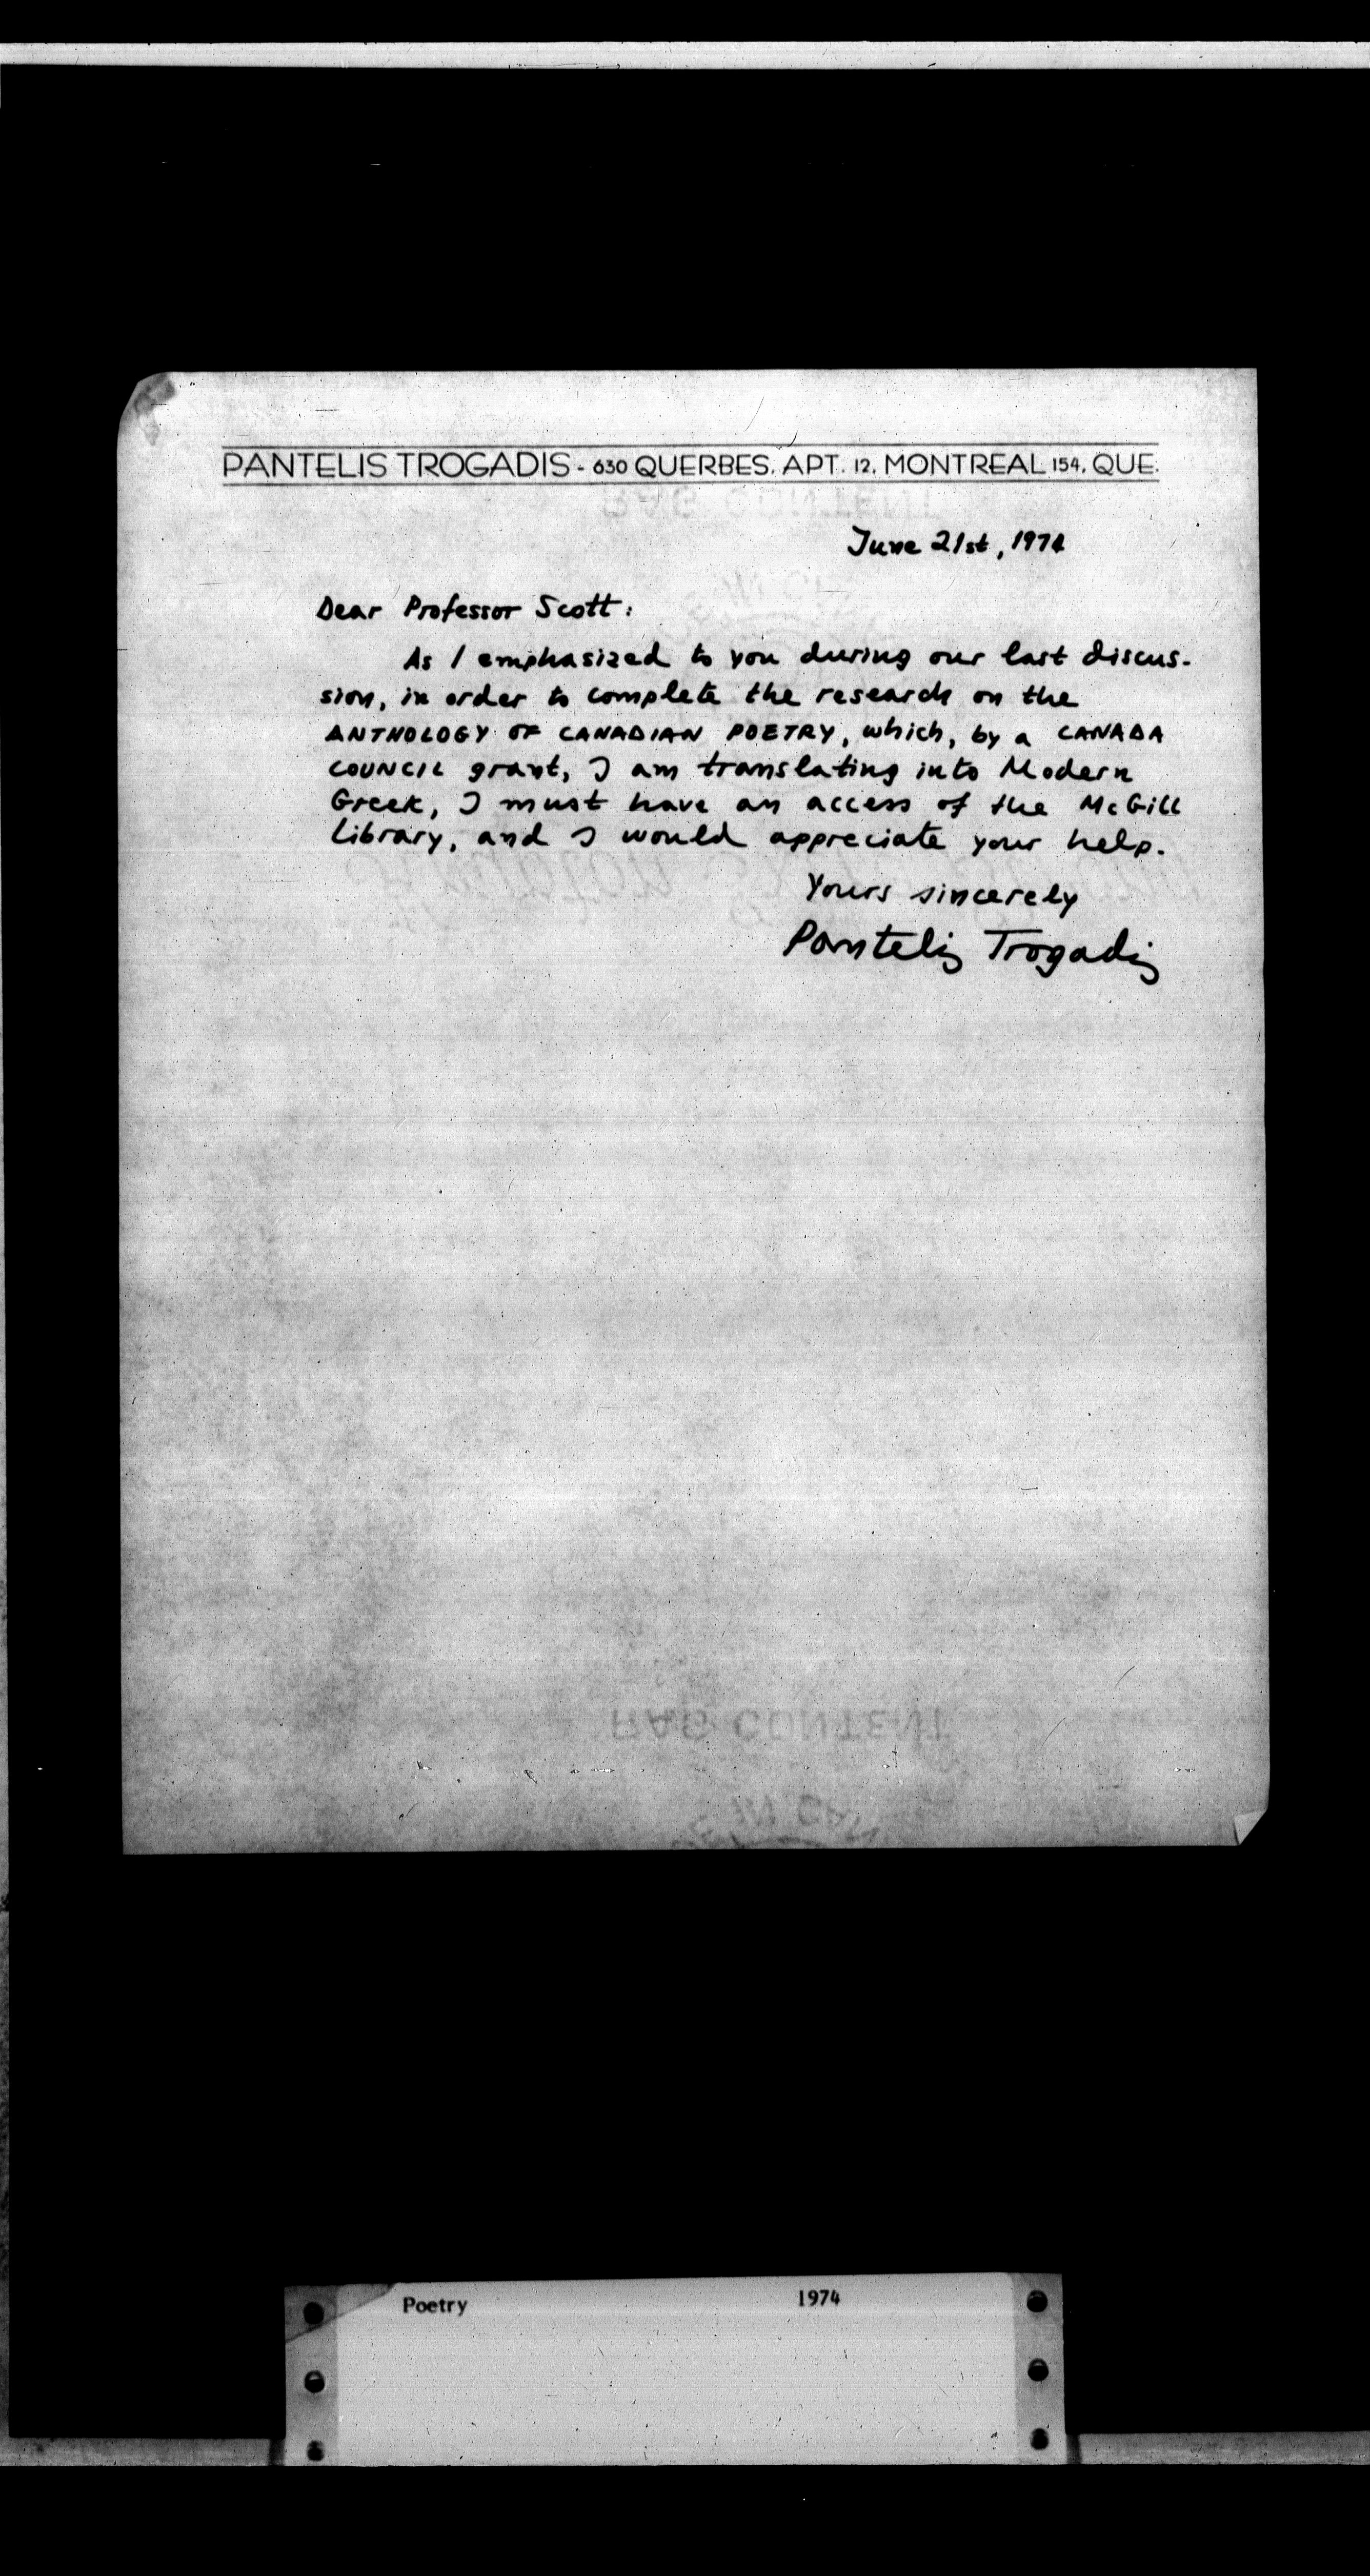 PANTELIS TROGADIS - 630 QUERBES, APT. 12, MONTREAL 154, QUE.
June 21st, 1974
Dear Professor Scott:
As I emphasized to you during our last discus-
sion, in order to complete the research on the
ANTHOLOGY OF CANADIAN POETRY, which, by a CANADA
COUNCIL grant, I am translating into Modern
Greek, I must have an access of the McGill
Library, and I would appreciate your help.
Yours sincerely
Pantelis Trogadis
RAG CONTENT
Poetry 1974